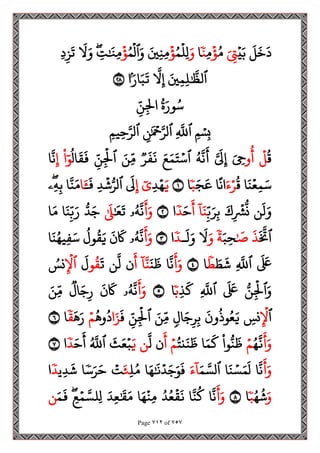 دَخَلَ بَيۡتِيَ مُؤۡمِنٗا وَلِلۡمُؤۡمِنِينَ وَٱلۡمُؤۡمِنَٰتِۖ وَلَا تَزِدِ
ٱلظَّٰلِمِينَ إِلَّا تَبَارَۢا ٢٨
سُورَةُ الجِنِّ
بِسۡمِ ٱللَّهِ ٱلرَّحۡمَٰنِ ٱلرَّحِيمِ
قُلۡ أُوحِيَ إِلَيَّ أَنَّهُ ٱسۡتَمَعَ نَفَرٞ مِّنَ ٱلۡجِنِّ فَقَالُوٓاْ إِنَّا
سَمِعۡنَا قُرۡءَانًا عَجَبٗا ١ يَهۡدِيٓ إِلَى ٱلرُّشۡدِ فَـَٔامَنَّا بِهِۦۖ
وَلَن نُّشۡرِكَ بِرَبِّنَآ أَحَدٗا ٢ وَأَنَّهُۥ تَعَٰلَىٰ جَدُّ رَبِّنَا مَا
ٱتَّخَذَ صَٰحِبَةٗ وَلَا وَلَدٗا ٣ وَأَنَّهُۥ كَانَ يَقُولُ سَفِيهُنَا
عَلَى ٱللَّهِ شَطَطٗا ٤ وَأَنَّا ظَنَنَّآ أَن لَّن تَقُولَ ٱلۡإِنسُ
وَٱلۡجِنُّ عَلَى ٱللَّهِ كَذِبٗا ٥ وَأَنَّهُۥ كَانَ رِجَالٞ مِّنَ
ٱلۡإِنسِ يَعُوذُونَ بِرِجَالٖ مِّنَ ٱلۡجِنِّ فَزَادُوهُمۡ رَهَقٗا ٦
وَأَنَّهُمۡ ظَنُّواْ كَمَا ظَنَنتُمۡ أَن لَّن يَبۡعَثَ ٱللَّهُ أَحَدٗا ٧
وَأَنَّا لَمَسۡنَا ٱلسَّمَآءَ فَوَجَدۡنَٰهَا مُلِئَتۡ حَرَسٗا شَدِيدٗا
وَشُهُبٗا ٨ وَأَنَّا كُنَّا نَقۡعُدُ مِنۡهَا مَقَٰعِدَ لِلسَّمۡعِۖ فَمَن
Page ٧١٢ of ٧٥٧